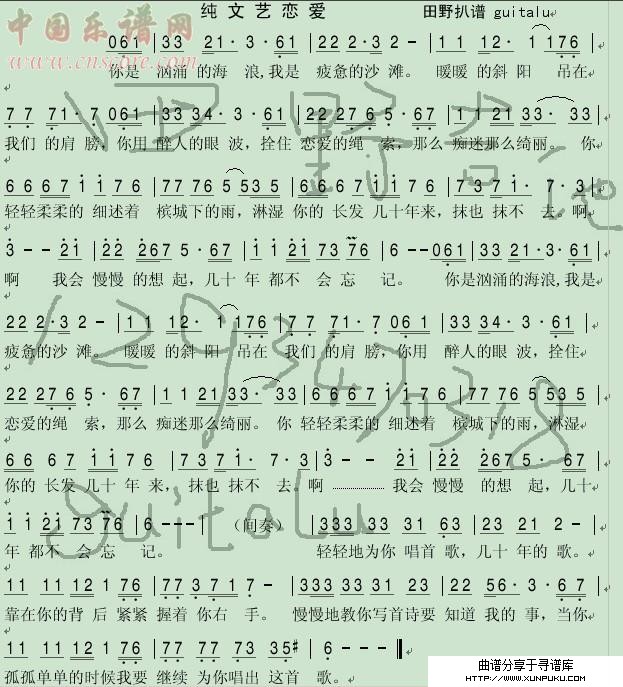 纯文艺恋爱 田野扒谱 guitalu
中国乐谱网
www.cnscore.com
061 | 33 21· 3 · 61 | 22 2·3 2 - | 1 1 12 · 1 176 |
你是 汹涌 的海 浪,我是 疲惫的沙 滩。 暖暖 的斜 阳 吊在
7 7 71· 7 061 | 33 34· 3 · 61 | 22 276 5 · 67 | 1 1 21 33· 33 |
我们 的肩 膀，你用 醉人的眼 波，拴住 恋爱的绳 索，那么 痴迷那么绮丽。 你
6 6 6 7 1 1 7 6 | 77 76 5 53 5 | 6 6 6 7 1 1 7 6 | 7 3 7 1 · 7 · 3 |
轻轻柔柔的 细述着 槟城下的雨，淋湿 你的 长发 几十年来，抹也 抹不 去。啊
3 - - 21 | 22 267 5 · 67 | 1 1 21 73 76 | 6 - - 061 | 33 21·3·61 |
啊 我会 慢慢 的想 起，几十 年 都不 会忘 记。 你是汹涌的海浪,我是
22 2·3 2 - | 1 1 12· 1 176 | 7 7 71· 7 061 | 33 34· 3 · 61 |
疲惫的沙 滩。 暖暖 的斜 阳 吊在 我们 的肩 膀，你用 醉人的眼 波，拴住
22 276 5 · 67 | 1 1 21 33· 33 | 6 6 6 7 1 1 7 6 | 77 76 5 53 5 |
恋爱的绳 索，那么 痴迷那么绮丽。你 轻轻柔柔的 细述着 槟城下的雨，淋湿
6 6 6 7 1 1 7 6 | 7 3 7 1 · 7 · 3 | 3 - - 21 | 22 267 5 · 67 |
你的 长发 几十 年 来，抹也 抹不 去。啊 ………… 我会 慢慢 的想 起，几十
1 1 21 73 76 | 6 - - - | （间奏） | 333 33 31 63 | 23 21 2 - |
年 都不 会忘 记。 轻轻地为你 唱首 歌，几十 年的 歌。
11 11 12 1 76 | 77 · 3 7 1 7 - | 333 33 31 23 | 22 5 · 3 · 67 |
靠在你的背 后 紧紧 握着 你右 手。 慢慢地教你写首诗要 知道 我的 事，当你
11 11 12 1 76 | 77 77 73 35# | 6 - - - ‖
孤孤单单的时候我要 继续 为你唱出 这首 歌。
田野吉他
1293470318
guitalu
曲谱分享于寻谱库
HTTP://WWW.XUNPUKU.COM